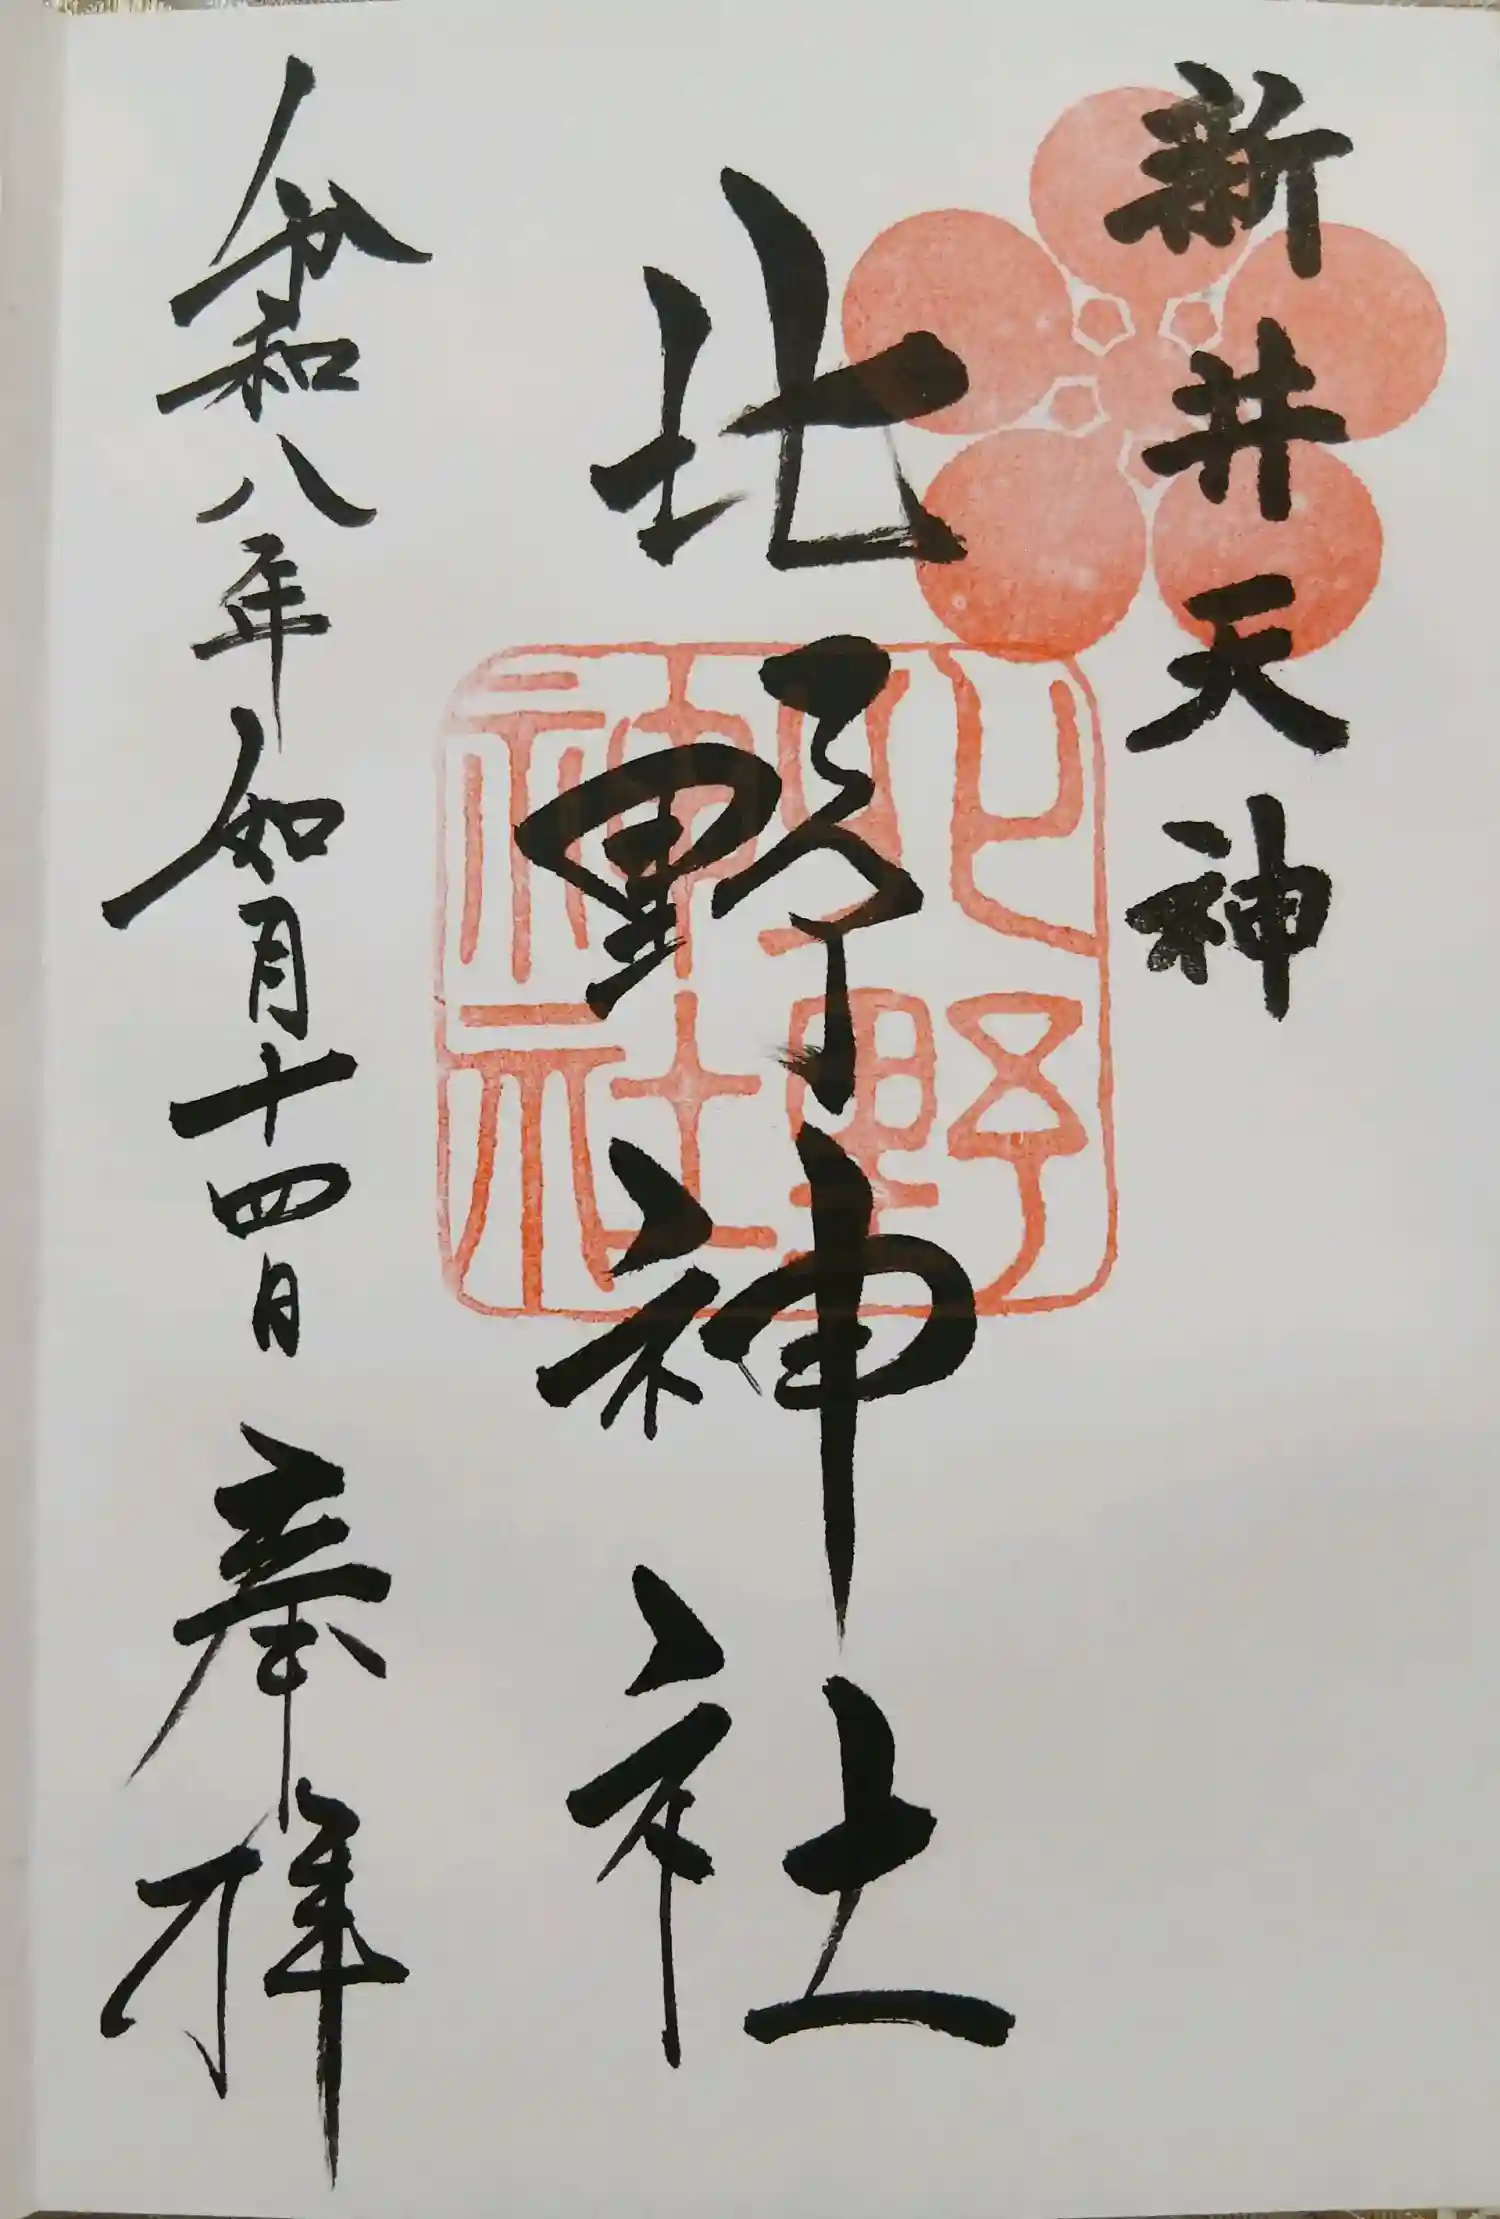 新井天神
北野神社
令和八年如月十四日 奉拝
北野神社